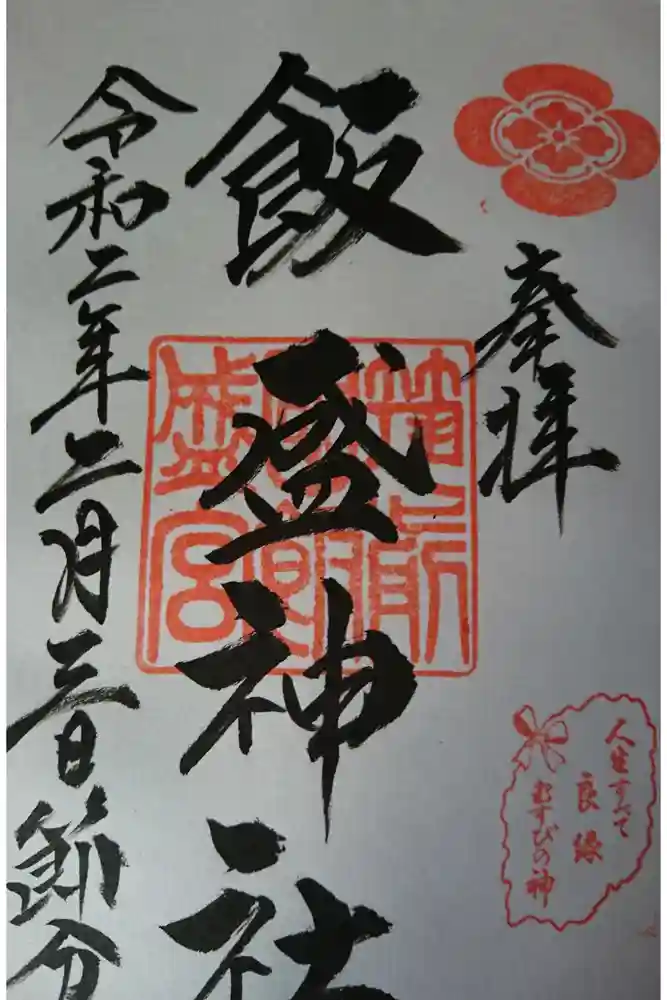 奉拝
飯盛神社
筑前
國飯
盛宮
令和二年二月三日節分
人生すべて
良縁
むすびの神